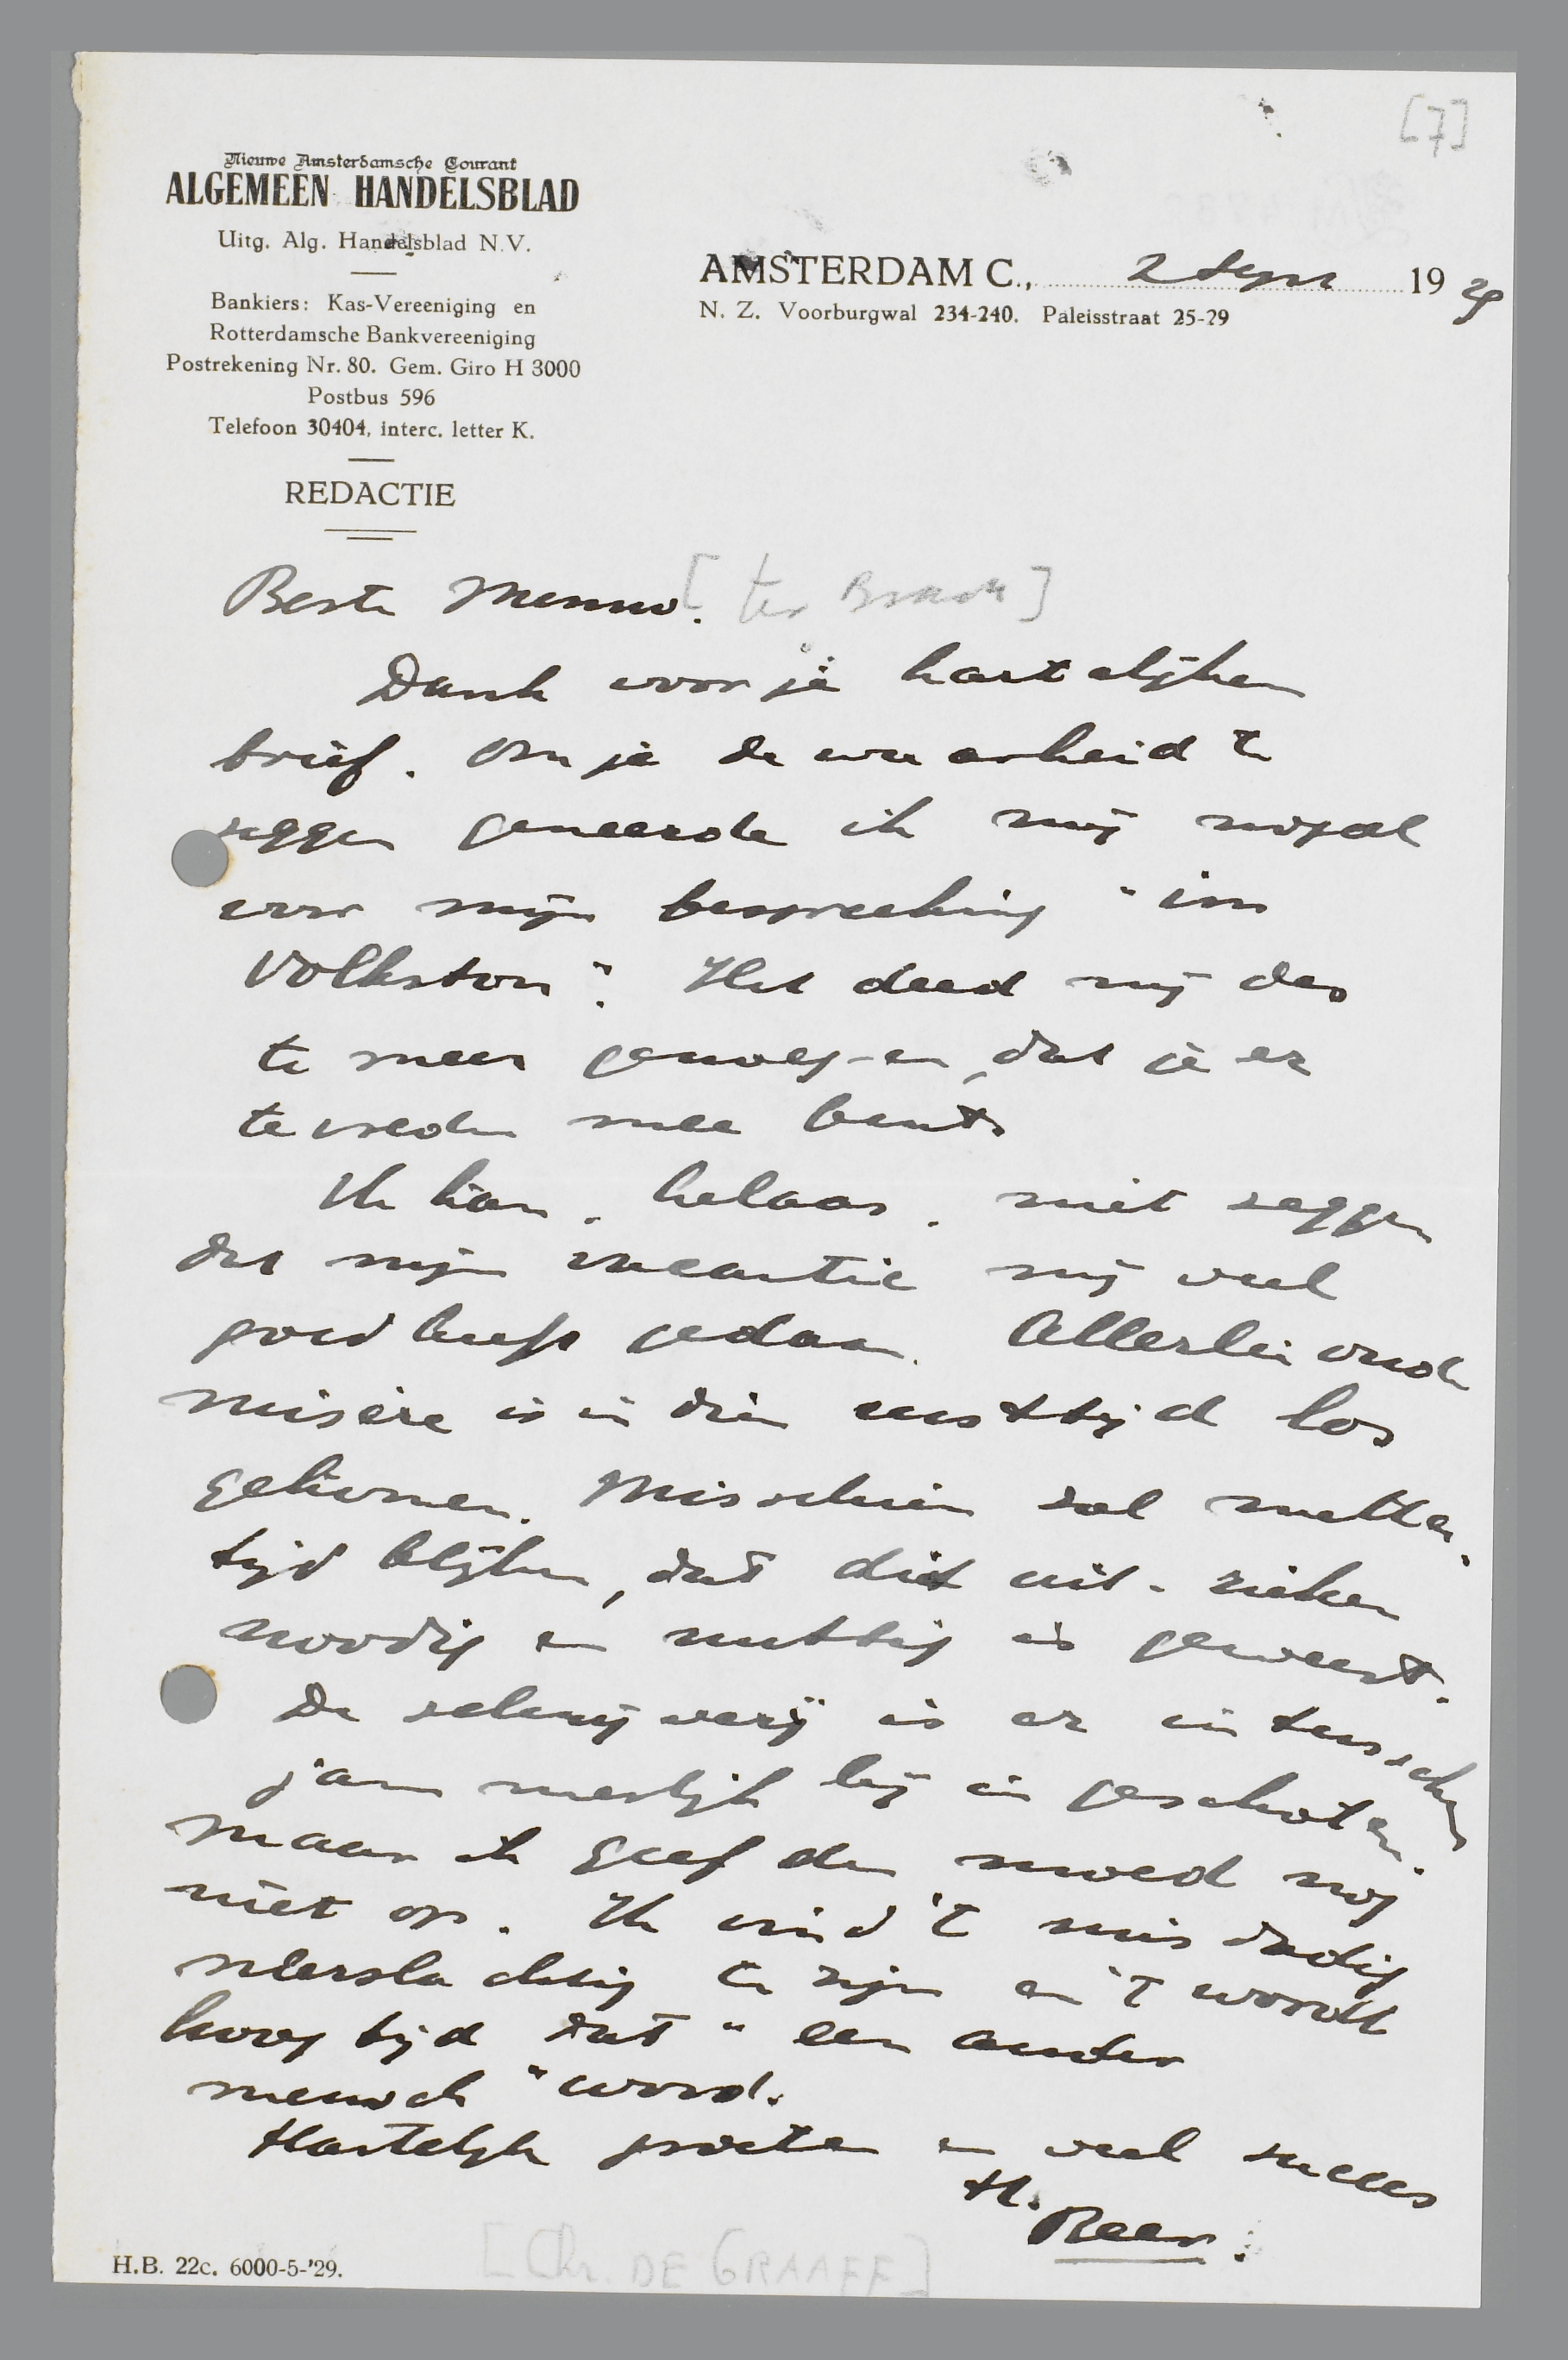 [7]
Nieuwe Amsterdamsche Courant
ALGEMEEN HANDELSBLAD
Uitg. Alg. Handelsblad N.V.
Bankiers: Kas-Vereeniging en
Rotterdamsche Bankvereeniging
Postrekening Nr. 80. Gem. Giro H 3000
Postbus 596
Telefoon 30404, interc. letter K.
REDACTIE
AMSTERDAM C., 2 Sept 1929
N. Z. Voorburgwal 234-240. Paleisstraat 25-29
Beste Menno. [ter Braak]
Dank voor je hartelijken
brief. Om je de waarheid te
zeggen geneerde ik mij nogal
voor mijn bespreking "im
Volkston". Het deed mij des
te meer genoegen, dat je er
tevreden mee bent.
Ik kan, helaas, niet zeggen
dat mijn vacantie mij veel
goed heeft gedaan. Allerlei oude
misère is in dien rusttijd los
gekomen. Misschien zal metter-
tijd blijken, dat dit uit-zieken
noodig en nuttig is geweest.
De schrijverij is er intusschen
jammerlijk bij in geschoten.
maar ik geef den moed nog
niet op. Ik vind 't misdadig
neerslachtig te zijn en 't wordt
hoog tijd dat "een ander
mensch" word.
Hartelijk groeten en veel succes
t.t.
Beer.
[Chr. DE GRAAFF]
H.B. 22c. 6000-5-'29.